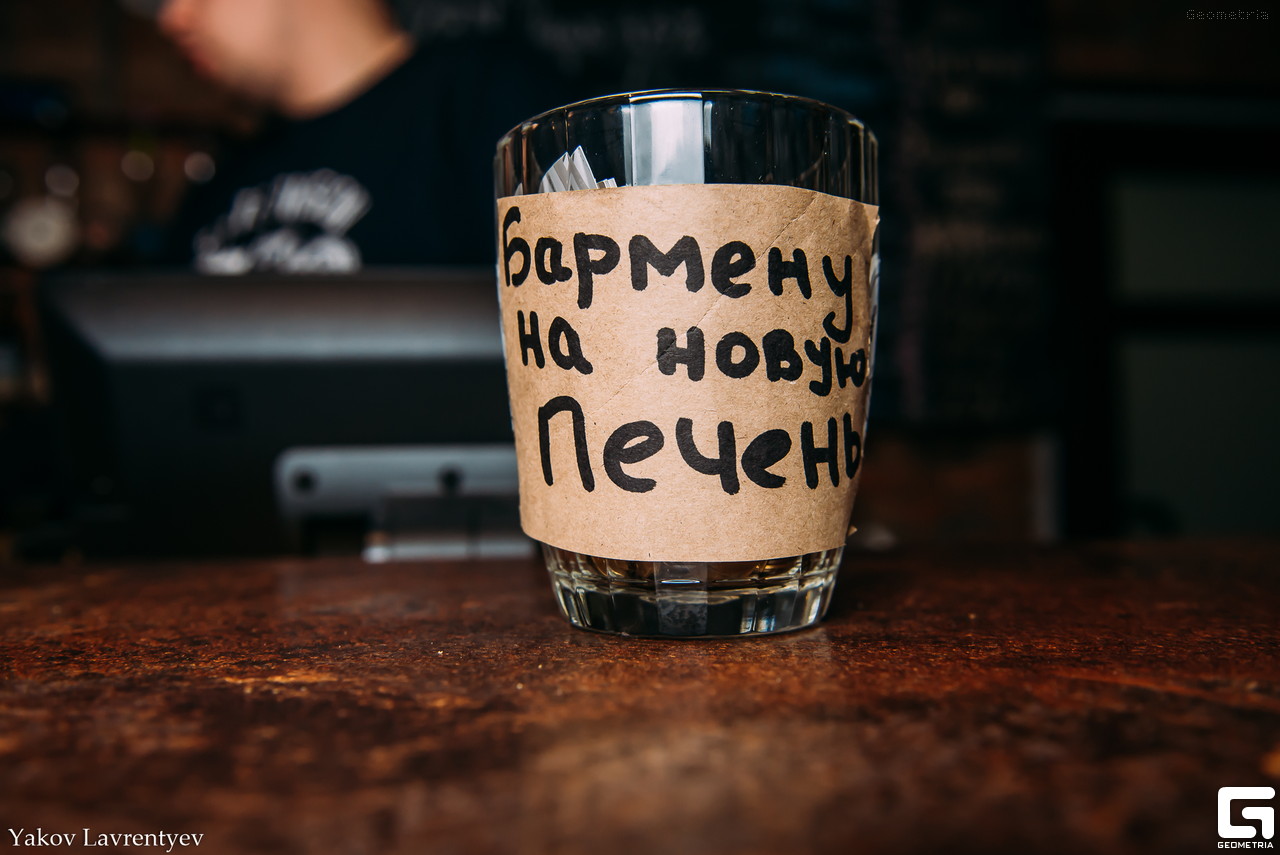 Geometria
Бармену
на новую
Печень
Yakov Lavrentyev
GEOMETRIA